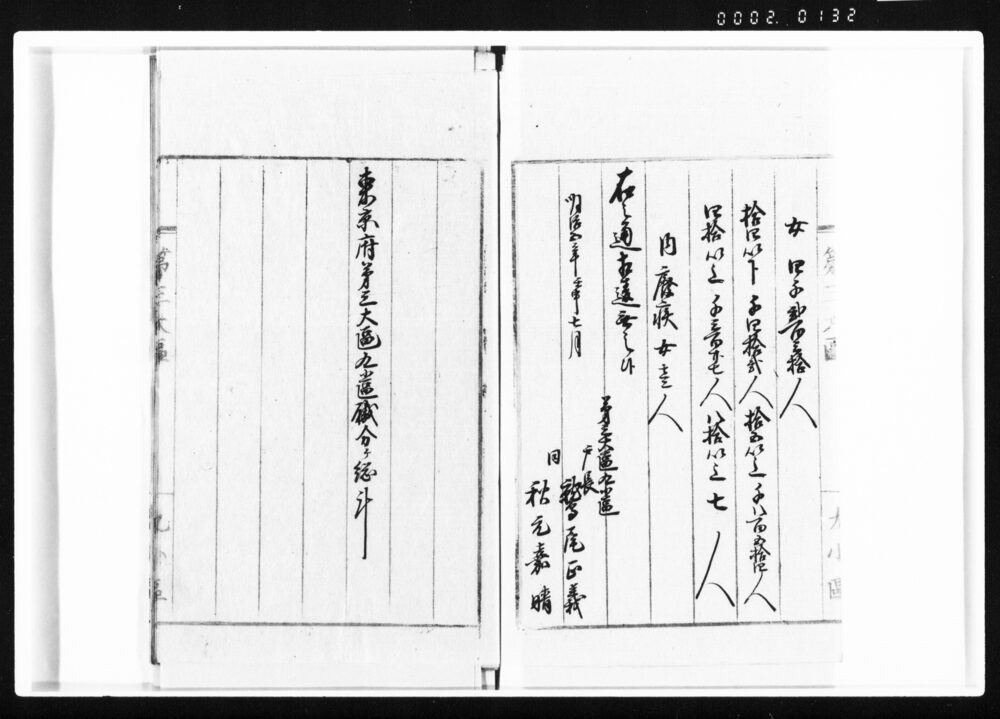 0002.0132
女 四千弐百三拾人
拾四以下 千四拾弐人 拾五以上 千八百五拾四人
四拾以上 千三百廿七人 八拾以上 七人
内 廃疾 女 壱人
右之通相違無之候
明治五年壬申七月
第三大區九小區
戸長 鷲尾正義
同 秋元嘉晴
東京府第三大區九小區職分ケ総計
第三大區
九小區